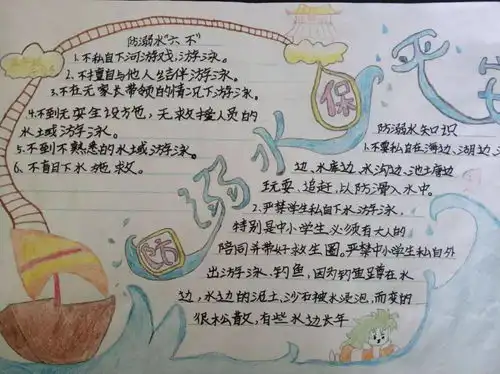 防溺水“六不”
1.不私自下河游戏,游泳。
2.不擅自与他人结伴游泳。
3.不在无家长带领的情况下游泳。
4.不到无安全设方也,无救援人员的
水土域游泳。
5.不到不熟悉的水土域游泳。
6.不盲目下水施救。
防溺水
保
平
防溺水知识
1.不要私自在海边、湖边、
边、水库边、水沟边、池土唐边
玩耍、追赶,以防滑入水中。
2.严禁学生私自下水游泳,
特别是中小学生必须有大人的
陪同并带好救生圈。严禁中小学生私自外
出游泳、钓鱼,因为钓鱼足蹲在水
边,水边的泥土、沙石被水浸泡,而变的
很松散,有些水边长年